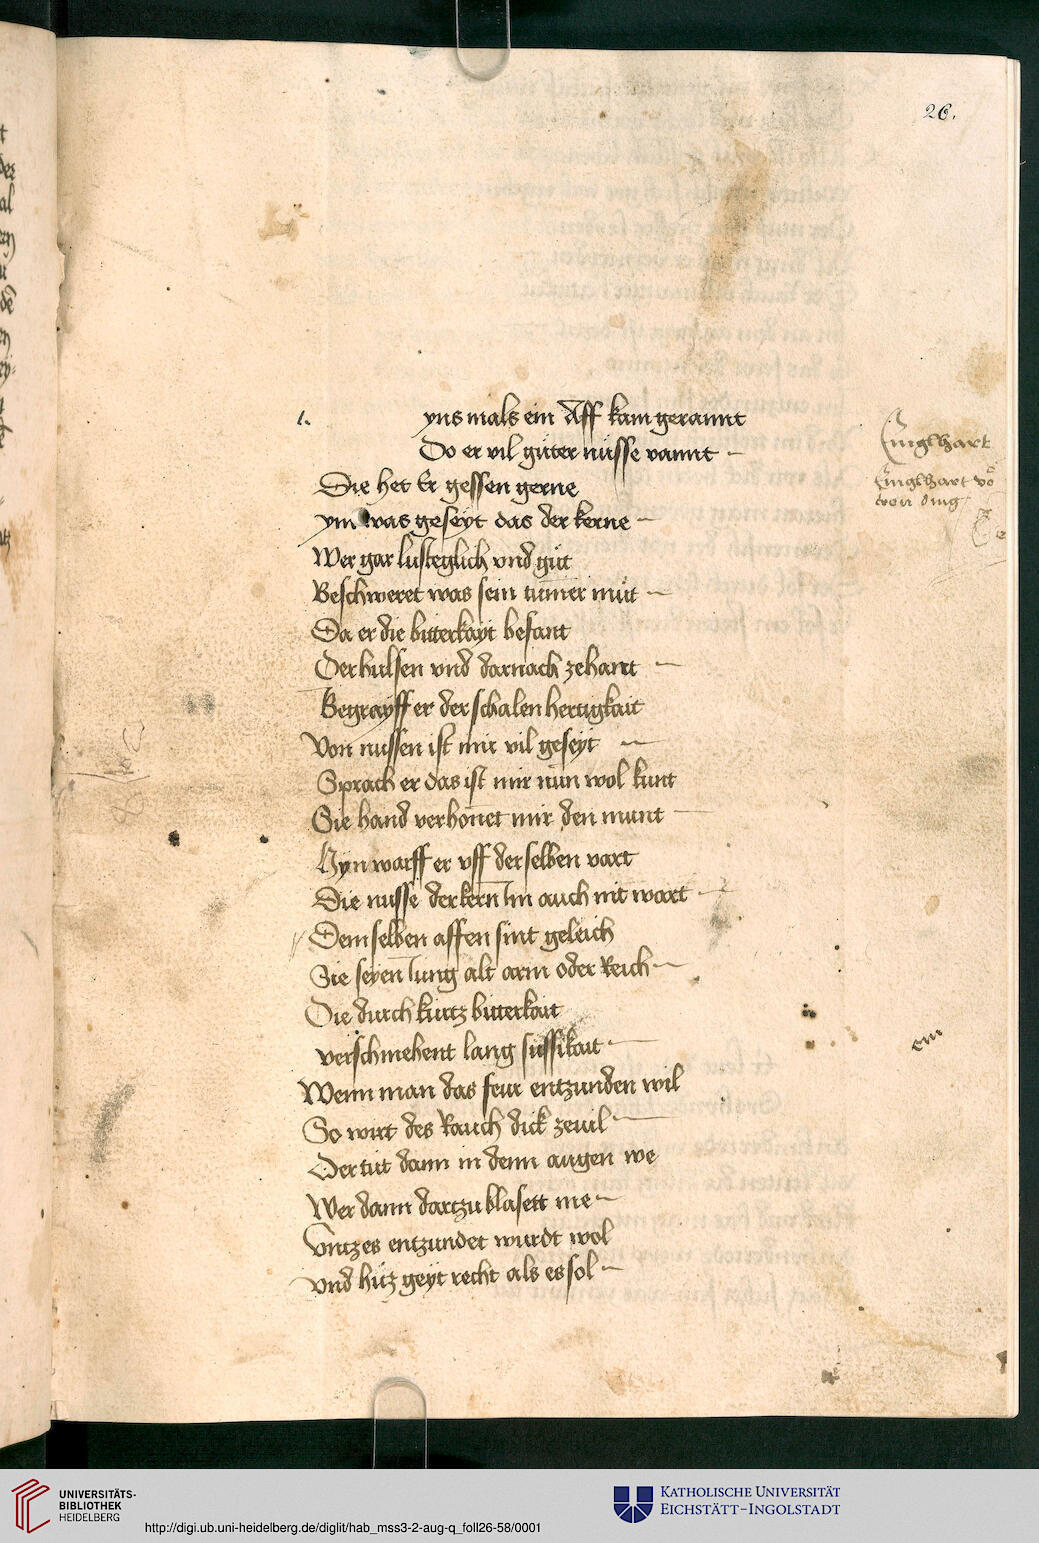 26.
1.
yns mals ein Aff kam gerannt
Do er vil gůter nüsse vannt
Die het Er gessen gerne
ym was geseyt das der kerne
Wer gar lusteglich vnd gůt
Beschweret was sein tumer můt
Da er die bitterkayt befant
Der hulsen vnd darnach zehant
Begrayff er der schalen hertigkait
Von nussen ist mir vil geseyt
Sprach er das ist mir nün wol kunt
Sie hand verhonet mir den munt
Hyn warff er vff der selben vart
Die nusse der kern Im auch nit wart
Dem selben affen sint geleich
Sie seyen Iung alt arm oder Reich
Die durch kurtz bitterkait
verschmehent lang süssikait
Wenn man das feur entzunden wil
So wirt des Rauch dick zeuil
Der tůt dann in denn augen we
Wer dann dartzu blasett me
Vntz es entzundet wurdt wol
vnd hitz geyt recht als es sol
Englhart
Englhart vo
ein
UNIVERSITÄTS-
BIBLIOTHEK
HEIDELBERG
http://digi.ub.uni-heidelberg.de/diglit/hab_mss3-2-aug-q_foll26-58/0001
KATHOLISCHE UNIVERSITÄT
EICHSTÄTT-INGOLSTADT